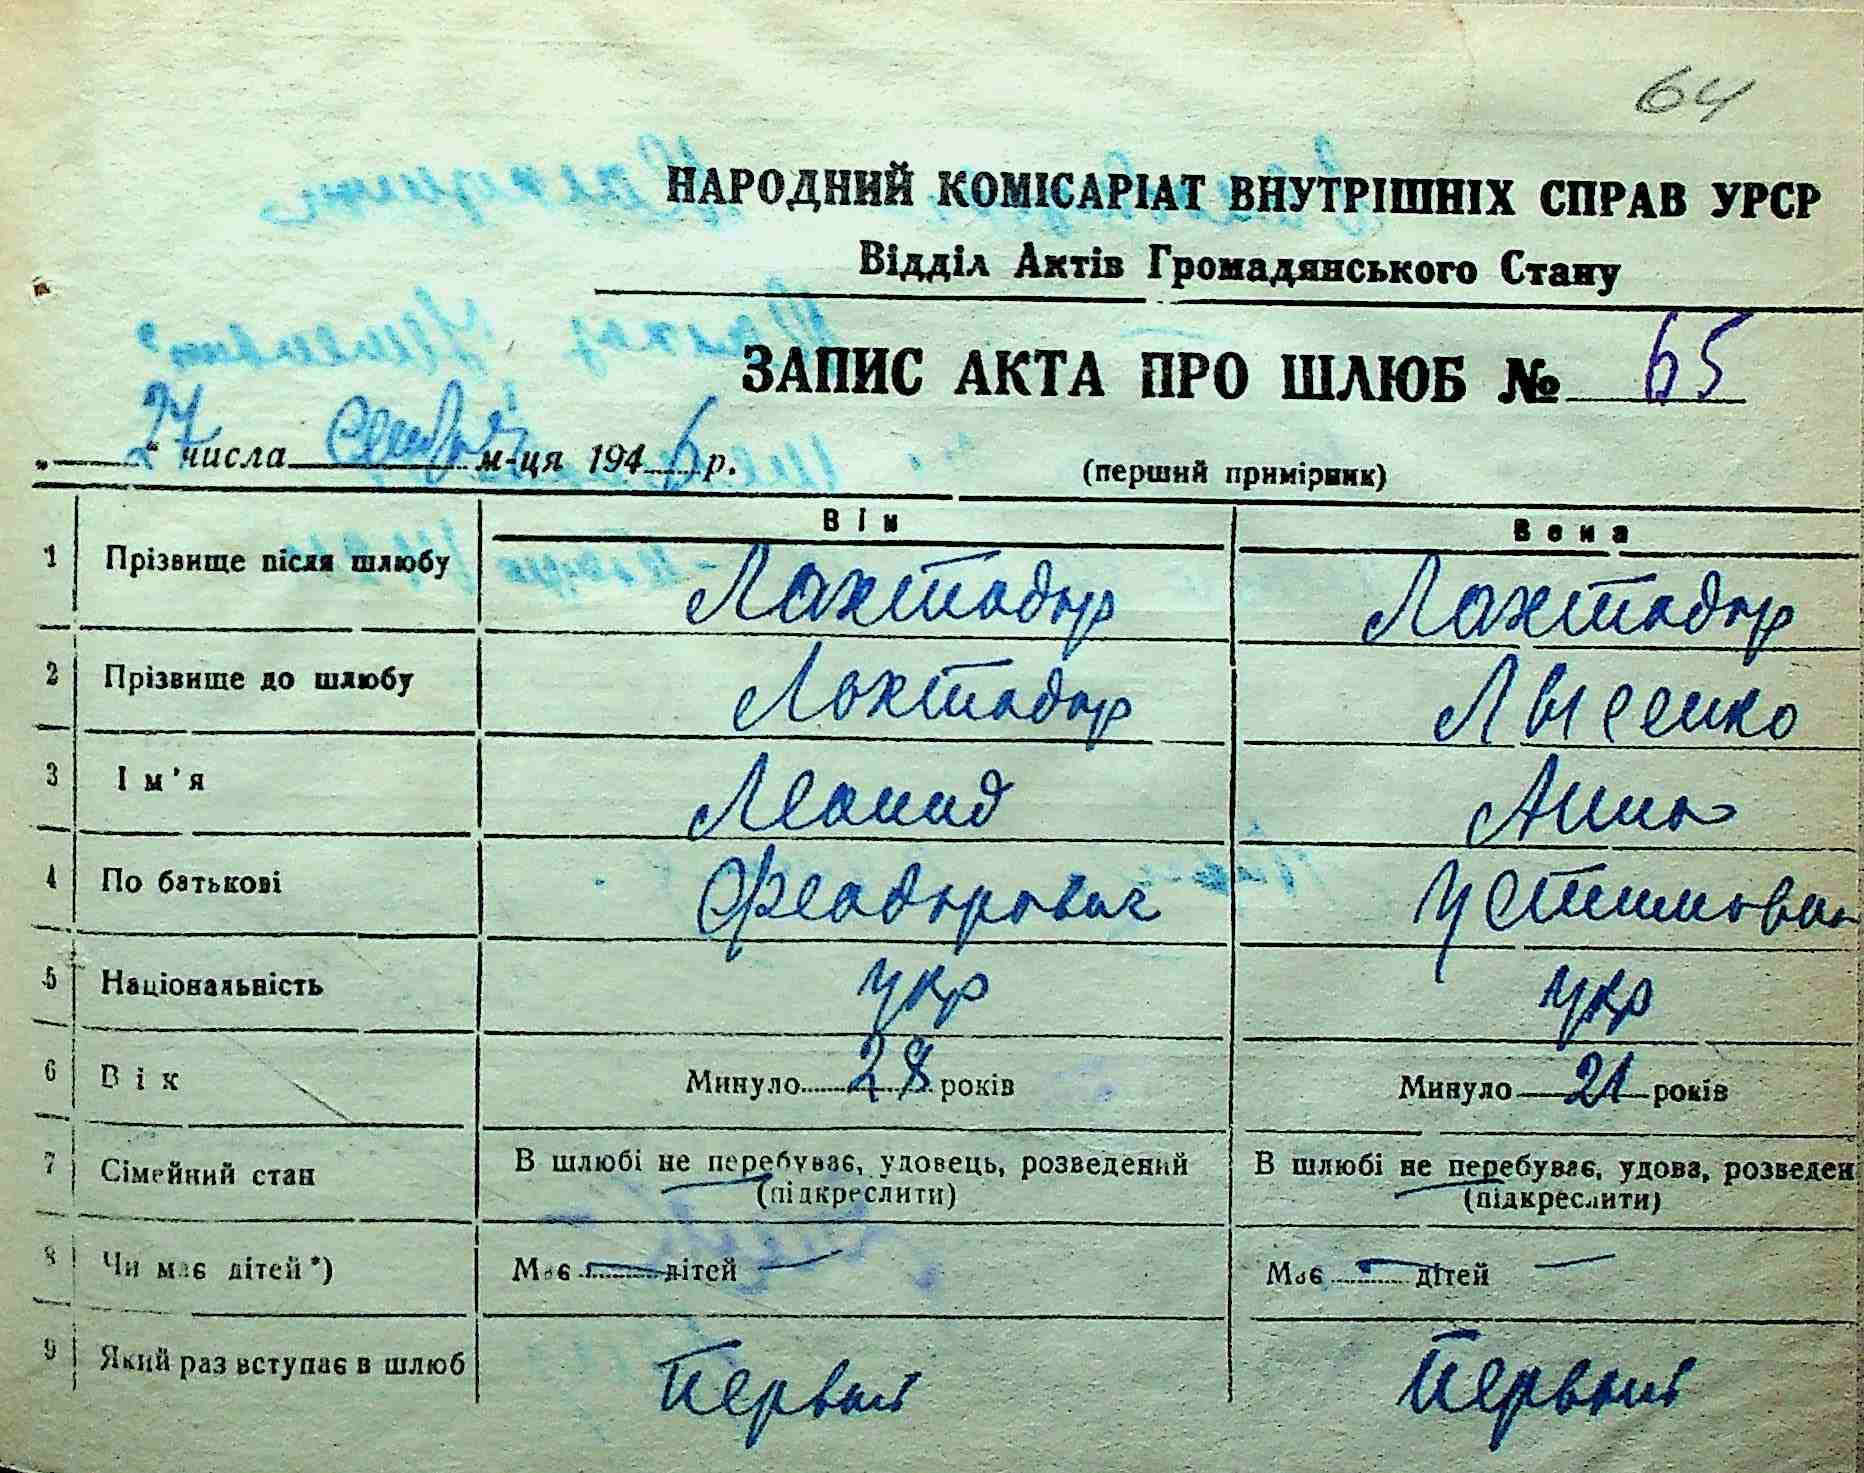 64
НАРОДНИЙ КОМІСАРІАТ ВНУТРІШНІХ СПРАВ УРСР
Відділ Актів Громадянського Стану
ЗАПИС АКТА ПРО ШЛЮБ № 65
„ 27 “ числа м-ця 1946 р.
(перший примірник)
Він Вона
1 Прізвище після шлюбу Лохтадир Лохтадир
2 Прізвище до шлюбу Лохтадир Лысенко
3 Ім'я Леонид Анна
4 По батькові Феодорович Устимовна
5 Національність укр укр
6 Вік Минуло 28 років Минуло 21 років
7 Сімейний стан В шлюбі не перебуває, удовець, розведений В шлюбі не перебуває, удова, розведен
(підкреслити) (підкреслити)
8 Чи має дітей*) Має — дітей — Має — дітей —
9 Який раз вступає в шлюб Первый Первый